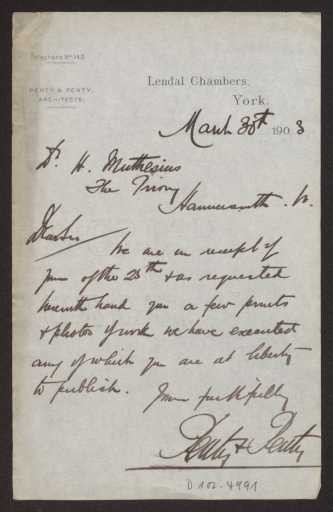 Telephone Nº 143.
PENTY & PENTY,
ARCHITECTS.
Lendal Chambers,
York,
March 30th 1903
Dr. H. Muthesius
The Priory
Hammersmith. W.
Dear Sir
We are in receipt of
yours of the 25th & as requested
herewith hand you a few prints
& photos of work we have executed
any of which you are at liberty
to publish.
Yours faithfully
Penty & Penty
D 102-4991